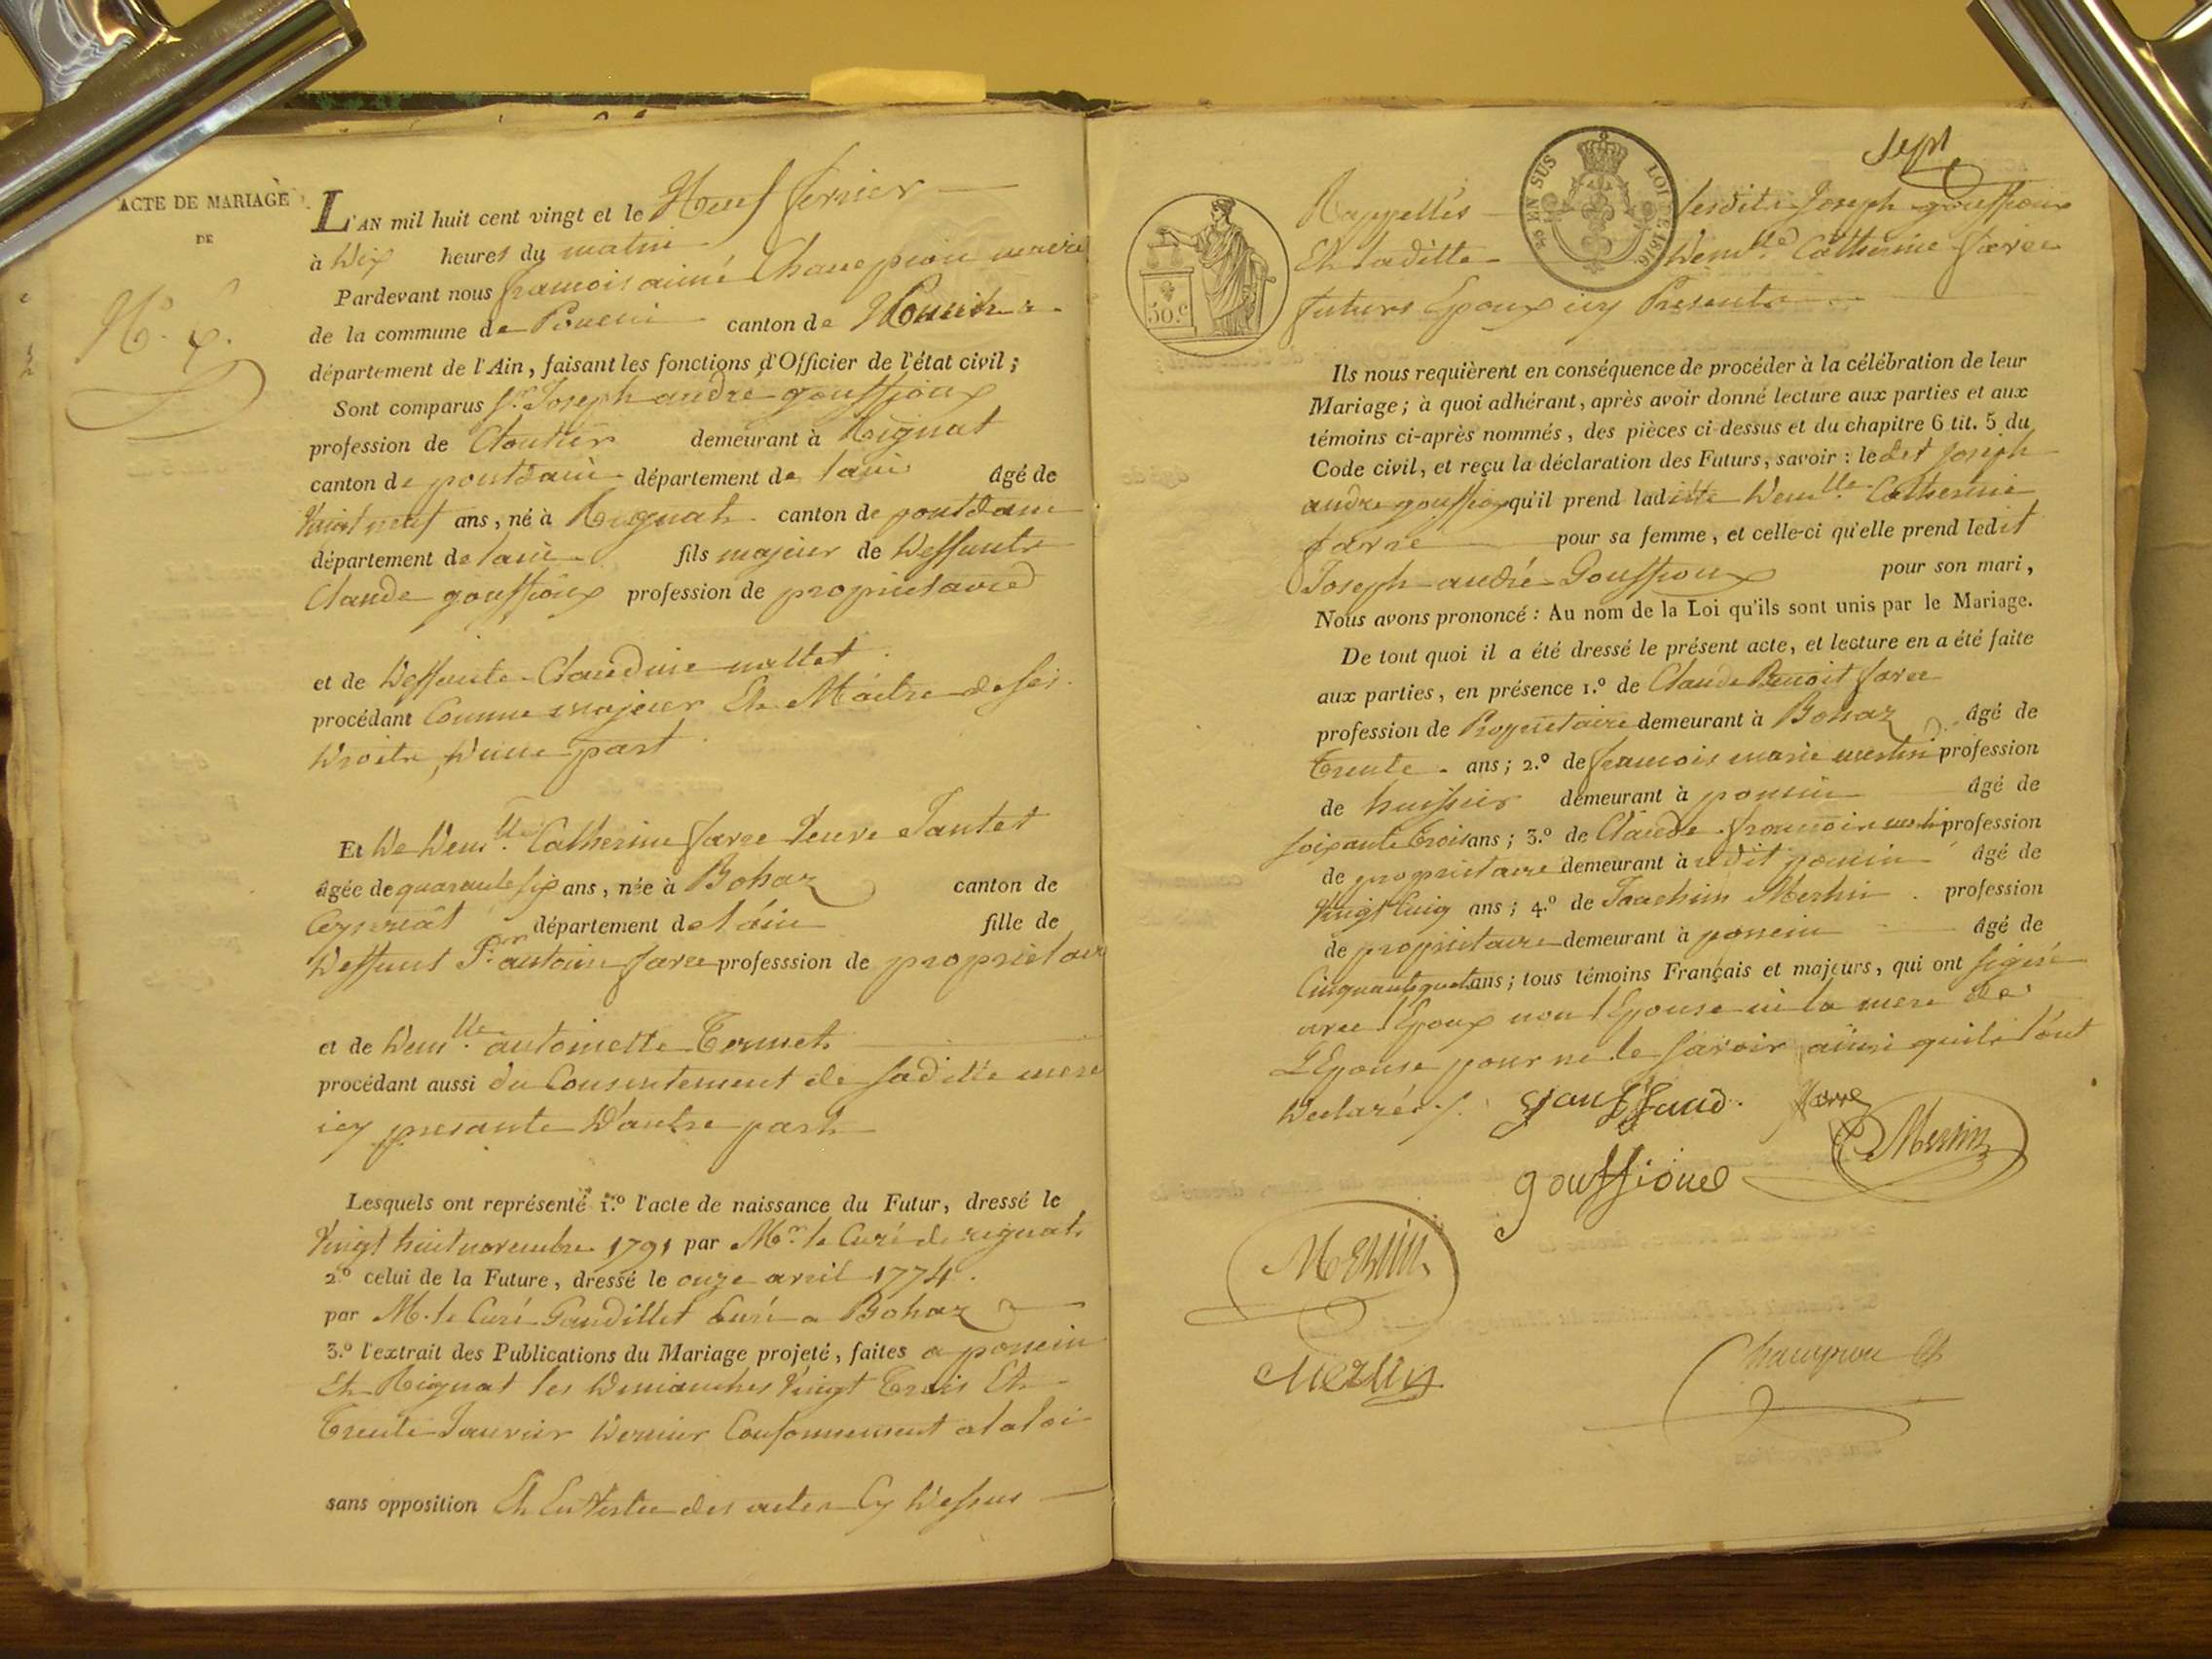 ACTE DE MARIAGE
DE
N.º 7.
L'AN mil huit cent vingt et le Neuf fevrier
à Dix heures du matin
Pardevant nous francois aimé Champion maire
de la commune de Poncin canton de Poncin
département de l'Ain, faisant les fonctions d'Officier de l'état civil ;
Sont comparus Sr. Joseph andré gouffioux
profession de Cloutier demeurant à Rignat
canton de pontdain département de lain âgé de
Vaint neuf ans, né à Rignat canton de pontdain
département de lain fils majeur de Deffunts
Claude gouffioux profession de proprietaire
et de Deffunte Claudine mallet
procédant Comme majeur Et Maitre de ses
Droits, D'une part
Et De Demlle. Catherine farre Veuve Tantet
âgée de quarante six ans, née à Bohaz canton de
Ceyseriat département de lain fille de
Deffunt Sr. antoine farre professsion de proprietaire
et de Demlle. antoinette Termet
procédant aussi du Consentement de saditte mere
icy presante D'autre part
Lesquels ont représenté 1.º l'acte de naissance du Futur, dressé le
Vingt huit novembre 1791 par Mr. le Curé de rignat
2.º celui de la Future, dressé le onze avril 1774.
par M. le Curé Gaudillet Curé a Bohaz
3.º l'extrait des Publications du Mariage projeté, faites a poncin
Et Rignat les Dimanches Vingt Trois Et
Trente Janvier Dernier Conformement a la loi
sans opposition Et En Vertu des actes Cy Dessus
sept
EN SUS
LOI DE 1816
50.c
Rappellés lesdits Joseph gouffioux
Et laditte Demlle Catherine farre
futurs Epoux icy Presents
Ils nous requièrent en conséquence de procéder à la célébration de leur
Mariage ; à quoi adhérant, après avoir donné lecture aux parties et aux
témoins ci-après nommés, des pièces ci-dessus et du chapitre 6 tit. 5 du
Code civil, et reçu la déclaration des Futurs, savoir : ledit Joseph
andre gouffioux qu'il prend laditte Demlle. Catherine
farre pour sa femme, et celle-ci qu'elle prend ledit
Joseph andré Gouffioux pour son mari,
Nous avons prononcé : Au nom de la Loi qu'ils sont unis par le Mariage.
De tout quoi il a été dressé le présent acte, et lecture en a été faite
aux parties, en présence 1.º de Claude Benoit farre
profession de Proprietaire demeurant à Bohaz âgé de
Trente ans ; 2.º de francois marie merlin profession
de huissier demeurant à poncin âgé de
soixante trois ans ; 3.º de Claude francois merlin profession
de proprietaire demeurant à udit poncin âgé de
Vingt Cinq ans ; 4.º de Joachim Merlin profession
de proprietaire demeurant à poncin âgé de
Cinquante quatre ans ; tous témoins Français et majeurs, qui ont signé
avec l'Epoux non l'Epouse ni la mere de
L'Epouse pour ne le savoir ainsi quils l'ont
Declarés.
farre
Merlin
gouffioux
Merlin
Merlin
Champion